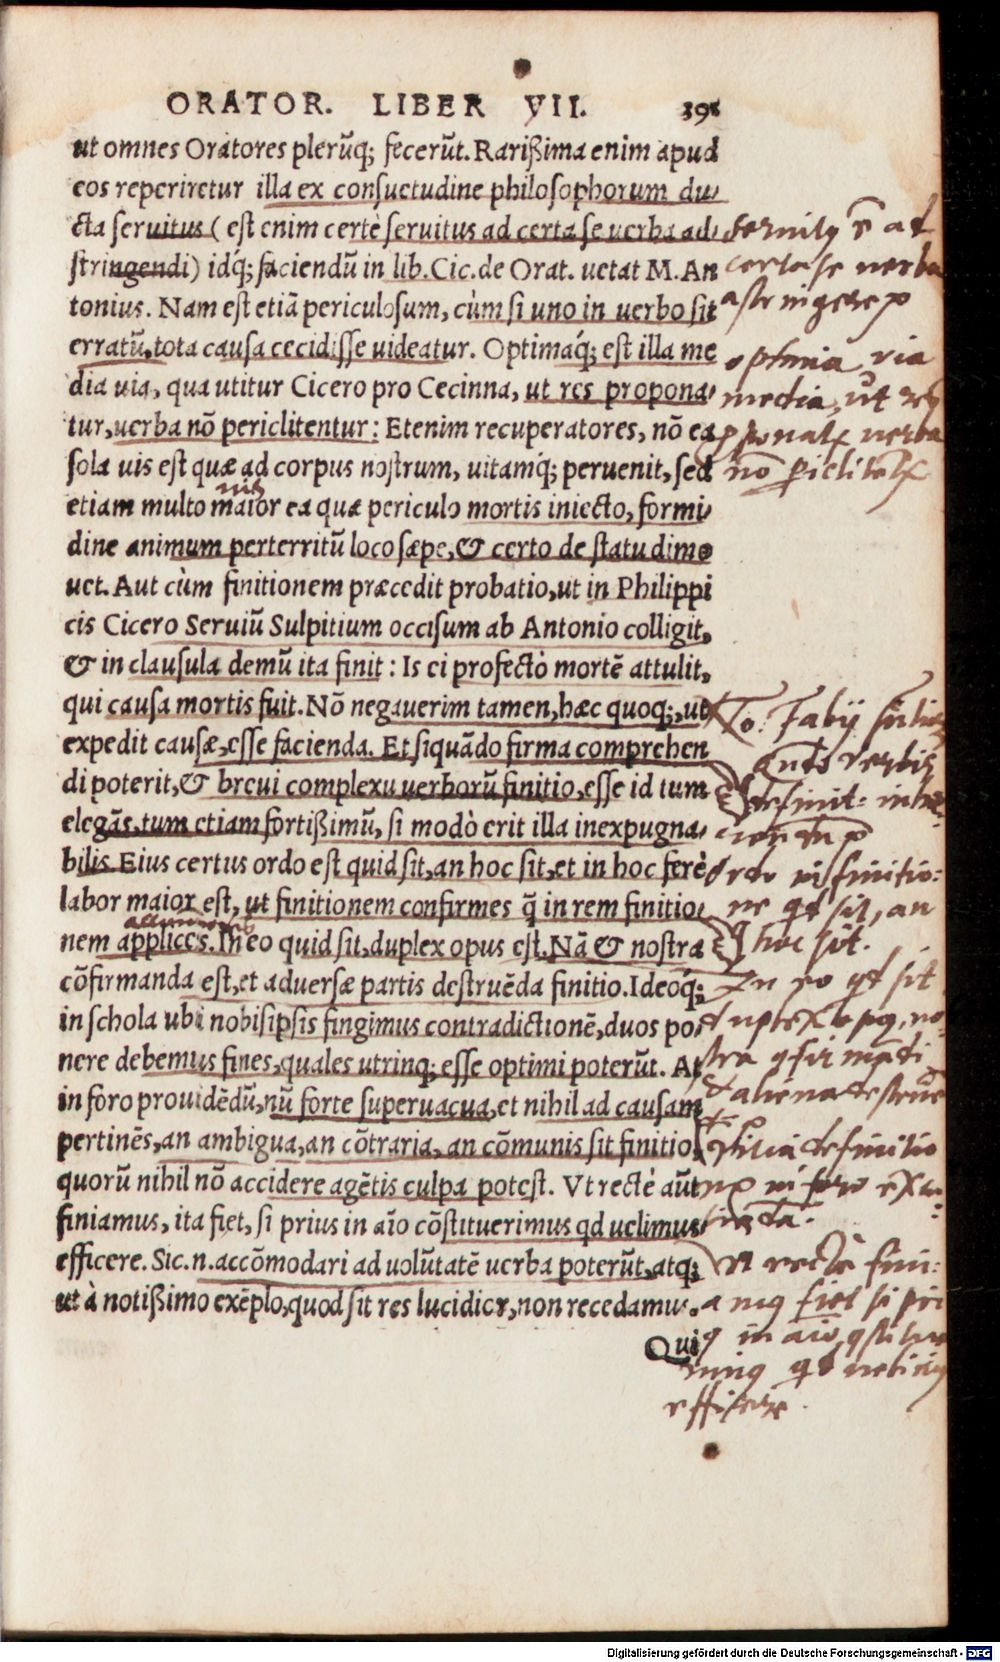 ORATOR. LIBER VII. 395
ut omnes Oratores plerũq; fecerũt. Rarißima enim apud
eos reperiretur illa ex consuetudine philosophorum du/
cta seruitus (est enim certè seruitus ad certa se uerba ad/
stringendi) idq; faciendũ in lib. Cic. de Orat. uetat M. An
tonius. Nam est etiã periculosum, cùm si uno in uerbo sit
erratũ, tota causa cecidisse uideatur. Optimaq́; est illa me
dia uia, qua utitur Cicero pro Cecinna, ut res propona/
tur, uerba nõ periclitentur: Etenim recuperatores, nõ ea
sola uis est quæ ad corpus nostrum, uitamq́; peruenit, sed
uis
etiam multo maior ea quæ periculo mortis iniecto, formi/
dine animum perterritũ loco sæpe, & certo de statu dimo
uet. Aut cùm finitionem præcedit probatio, ut in Philippi
cis Cicero Seruiũ Sulpitium occisum ab Antonio colligit,
& in clausula demũ ita finit: Is ei profectò mortẽ attulit,
qui causa mortis fuit. Nõ negauerim tamen, hæc quoq;, ut
expedit causæ, esse facienda. Et siquãdo firma comprehen
di poterit, & breui complexu uerborũ finitio, esse id tum
elegãs, tum etiam fortißimũ, si modò erit illa inexpugna/
bilis. Eius certus ordo est quid sit, an hoc sit, et in hoc ferè
labor maior est, ut finitionem confirmes q̃ in rem finitio/
nem applices. In eo quid sit, duplex opus est. Nã & nostra
cõfirmanda est, et aduersæ partis destruẽda finitio. Ideoq́;
in schola ubi nobisipsis fingimus contradictionẽ, duos po/
nere debemus fines, quales utrinq; esse optimi poterũt. At
in foro prouidẽdũ, nũ forte superuacua, et nihil ad causam
pertinẽs, an ambigua, an cõtraria, an cõmunis sit finitio,
quorũ nihil nõ accidere agẽtis culpa potest. Vt rectè aũt
finiamus, ita fiet, si prius in aĩo cõstituerimus qd uelimus
efficere. Sic .n. accõmodari ad uolũtatẽ uerba poterũt, atq;
ut à notißimo exẽplo, quod sit res lucidior, non recedamus.
Qui
seruitꝰ ẽ ad
certa se uerba
astringere
optima uia
media, ut res
proponatur uerba
nõ periclitentur
ordo in finitio:
ne qd sit, an
hoc sit.
In eo qd sit
duplex opus, no
stra
destrue
Vt rectè fini:
amus fiet si pri
in aĩo
qd uelimus
efficere.